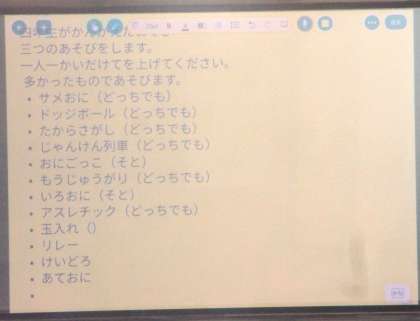 三つのあそびをします。
一人一かいだけてを上げてください。
多かったものであそびます。
• サメおに（どっちでも）
• ドッジボール（どっちでも）
• たからさがし（どっちでも）
• じゃんけん列車（どっちでも）
• おにごっこ（そと）
• もうじゅうがり（どっちでも）
• いろおに（そと）
• アスレチック（どっちでも）
• 玉入れ（）
• リレー
• けいどろ
• あておに
•